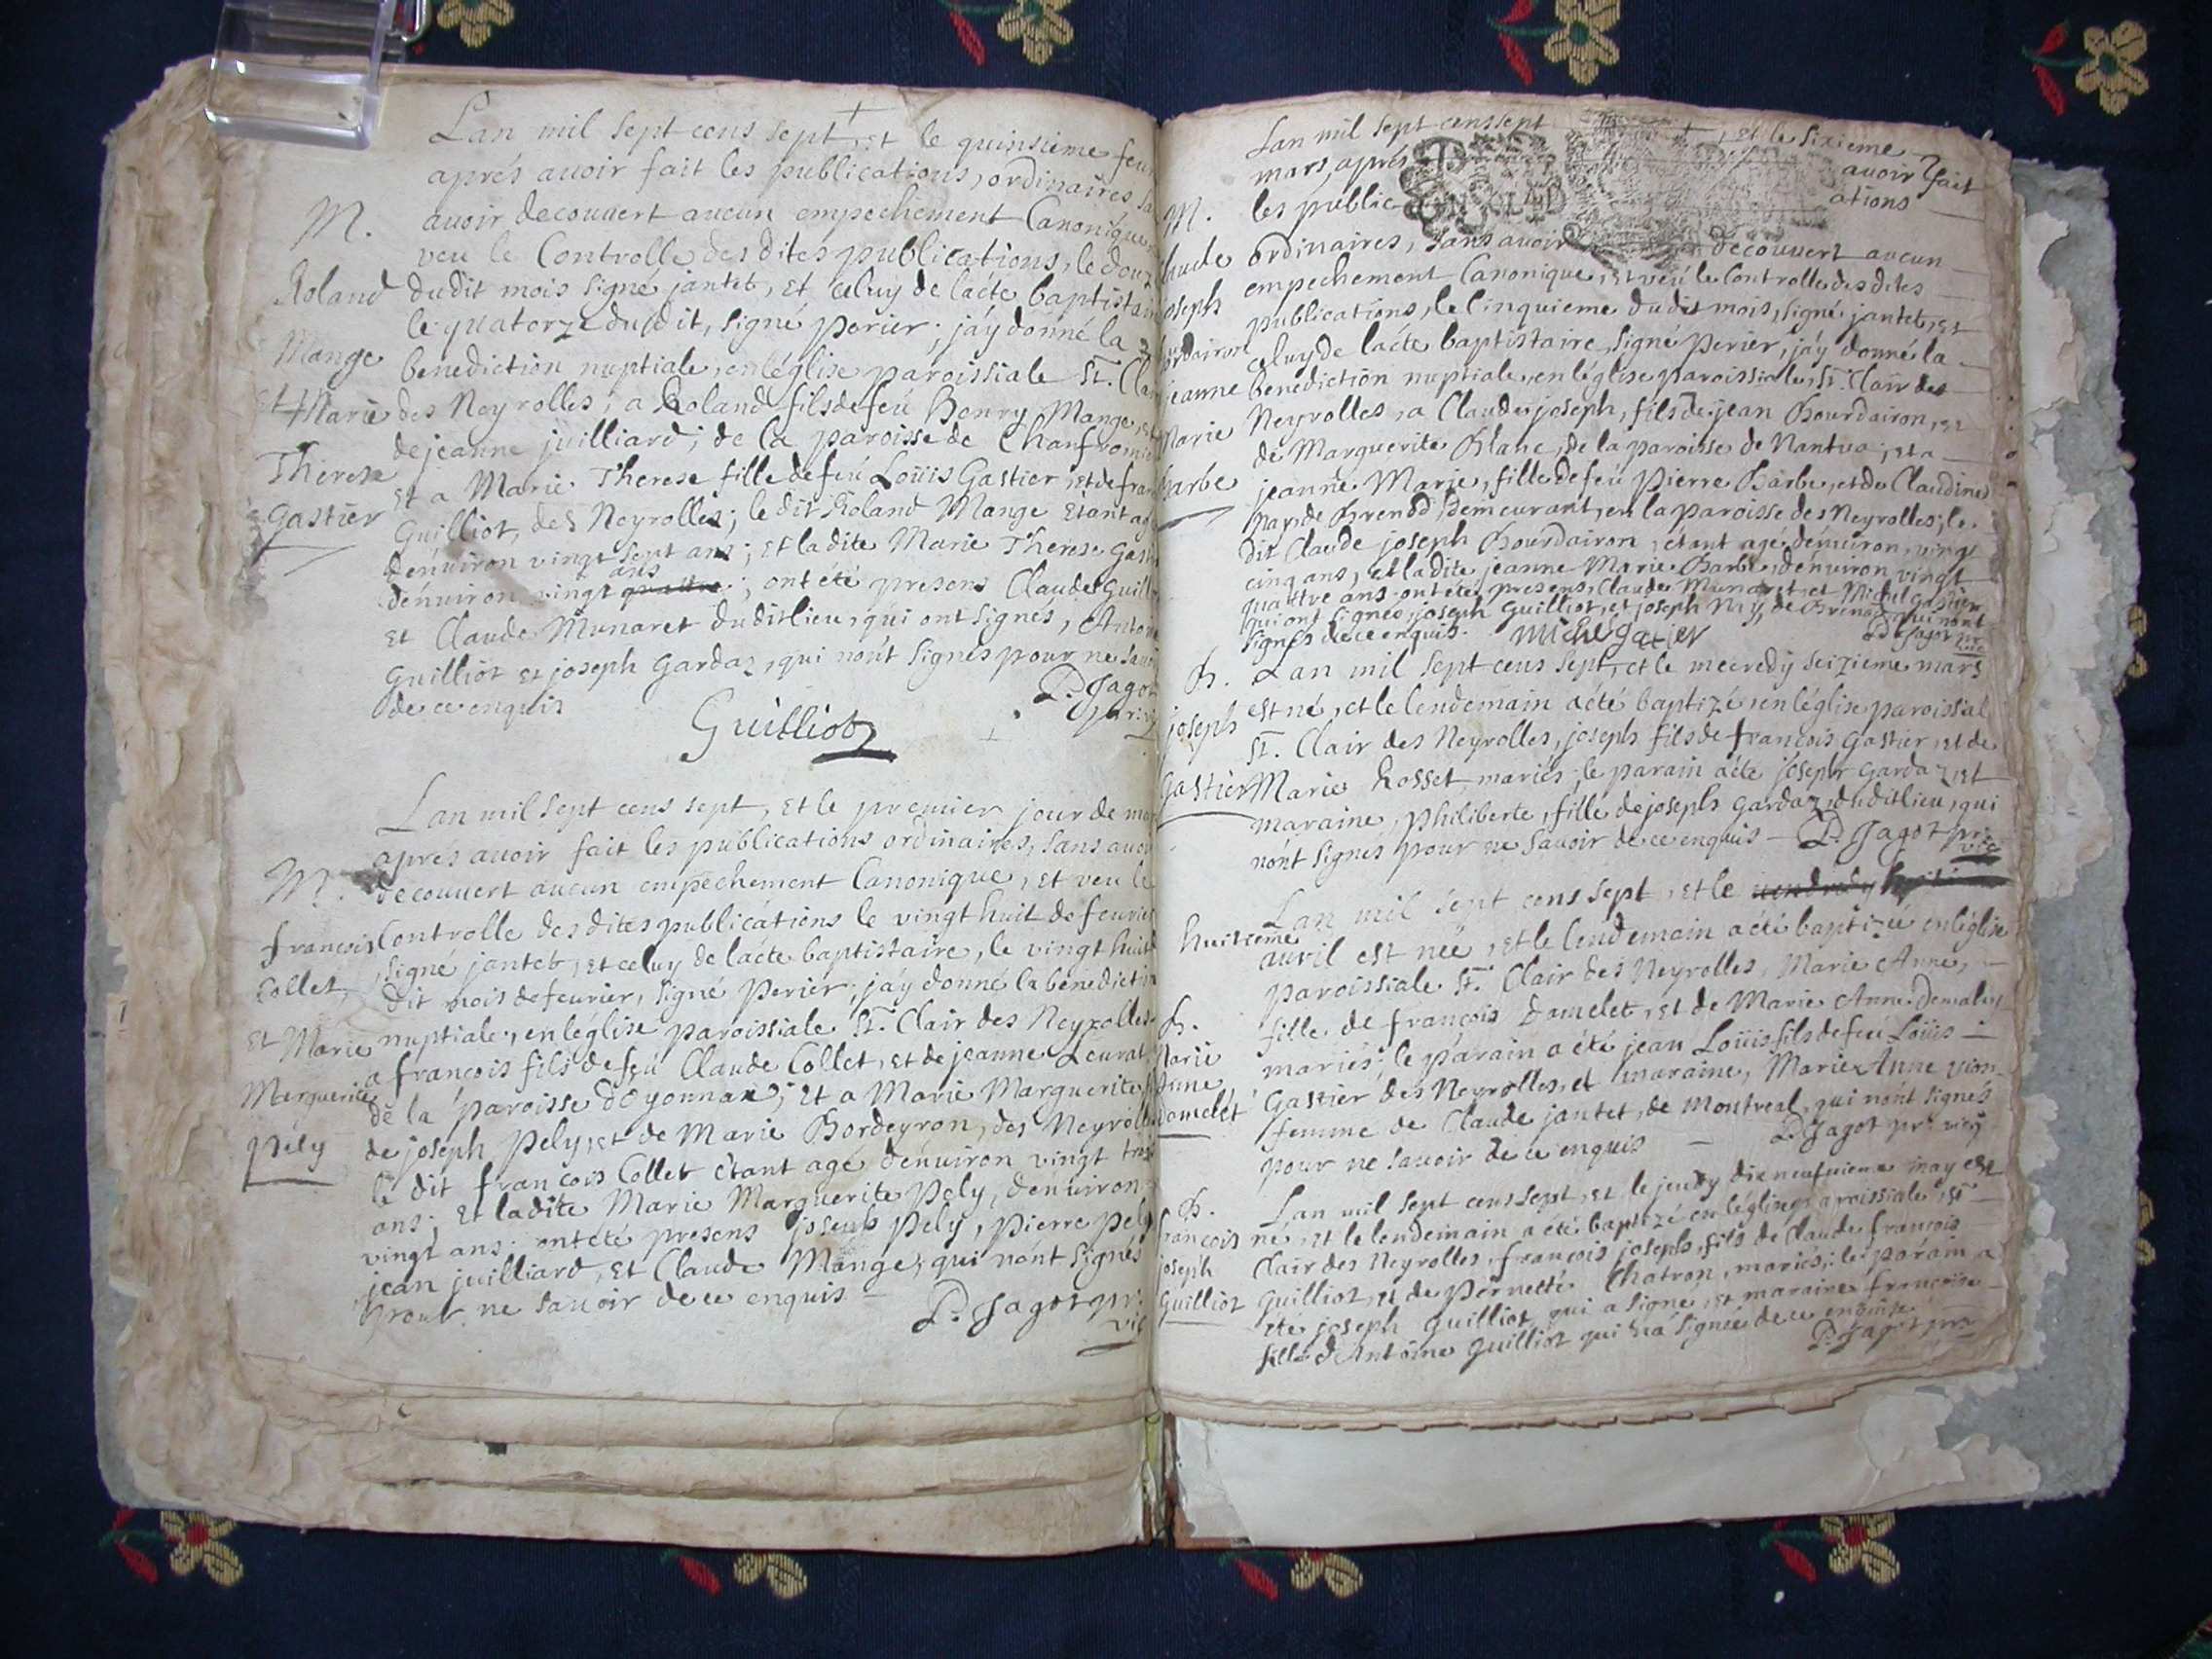 L'an mil sept cens sept, et le quinsieme feu
aprés auoir fait les publications, ordinaires, sa
M. auoir decouuert aucun empechement Canonique,
veu le Controlle des dites publications, le douz
Roland dudit mois signé jantet, et celuy de lácte baptistair
le quatorze du dit, signé perier; jáy donné la
Mange benediction nuptiale, en léglise paroissiale St. Clai
et Marie des Neyrolles; a Roland fils de feu Henry Mange, et
de jeanne juilliard; de la paroisse de Chanfromie
Therese et a Marie Therese fille de feú Loüis Gastier, et de fran
Gastier Guilliot, des Neyrolles; le dit Roland Mange étant agé
dénuiron vingt sept ans; et la dite Marie Therese Gast
ans
dénuiron vingt quattre; ont été presens Claude Guilli
et Claude Munaret dudit lieu, qui ont signés, Antoine
Guilliot et joseph Gardaz, qui nónt signés pour ne sauoi
de ce enquis
P. Jagot
Guilliot
L'an mil sept cens sept, et le premier jour de ma
aprés auoir fait les publications ordinaires, sans auoi
M. decouuert aucun empechement Canonique, et veu le
françois Controlle des dites publicátions le vingt huit de feurier
Collet, signé jantet, et celuy de lácte baptistaire, le vingt huit d
dit mois de feurier, signé Perier; jáy donné la benediction
et Marie nuptiale, en léglise paroissiale St. Clair des Neyrolles
a françois fils de feú Claude Collet, et de jeanne Leurat,
Merguerite de la paroisse dóyonnax; et a Marie Marguerite
pély de joseph Pely, et de Marie Bordeyron, des Neyrolles
le dit françois Collet étant agé dénuiron vingt trois
ans; et la dite Marie Marguerite Pely, dénuiron
vingt ans: ont été presens joseph Pely, Pierre Pely
jean juilliard, et Claude Mange, qui nónt signés
pour ne sauoir de ce enquis
P. Jagot pr.
vic
L'an mil sept cens sept, et le sixieme
mars, aprés auoir fait
M. les publications
laude ordinaires, sans auoir decouuert aucun
empechement Canonique, et veú le Controlle des dites
oseph publications, le cinquieme du dit mois, signé jantet, et
ourdairon celuy de lácte baptistaire, signé Perier, jáy donné la
jeanne benediction nuptiale, en léglise paroissiale, St. Clair des
Neyrolles, a Claude joseph, fils de jean Bourdairon, et
Marie de Marguerite Blanc, de la paroisse de Nantua; et a
barbe jeanne Marie, fille de feú Pierre Barbe, et de Claudine
pay de Brenod, demeurant, en la paroisse des Neyrolles; le
dit Claude joseph Bourdairon, étant agé dénuiron, vingt
cinq ans, et la dite jeanne Marie Barbe, dénuiron vingt
quattre ans: ont été presens, Claude Munaret, et Michel Gastier
qui ont signés, joseph Guilliot, et joseph Ney, de Brenod, qui nónt
signés de ce enquis. miché gatier P. Jagot pr
vic
B. L'an mil sept cens sept, et le mecredy seizieme mars
est né, et le lendemain a été baptizé, en léglise paroissial
joseph St. Clair des Neyrolles, joseph fils de françois Gastier, et de
Gastier Marie Rosset, mariés; le parain a été joseph Gardaz, et
maraine, philiberte, fille de joseph Gardaz, dudit lieu, qui
nónt signés pour ne sauoir de ce enquis P. Jagot pr
vic
L'an mil sept cens sept, et le vendredy
huitieme auril est née, et le lendemain a été baptizée en léglise
paroissiale St. Clair des Neyrolles, Marie Anne,
B. fille de françois Damelet, et de Marie Anne Demalet,
Marie mariés; le parain a été jean Loüis fils de feú Loüis
Anne Gastier des Neyrolles, et maraine, Marie Anne
Damelet femme de Claude jantet, de Montreal, qui nónt signés
pour ne sauoir de ce enquis P. Jagot pr. vic
B. L'an mil sept cens sept, et le jeudy dix neufuieme may est
françois né, et le lendemain a été baptizé en léglise paroissiale, St
joseph Clair des Neyrolles, françois joseph, fils de Claude françois
Guilliot Guilliot, et de Pernette Chatron, mariés; le parain a
été joseph Guilliot, qui a signé, et maraine françoise
fille dAntoine Guilliot qui ná signée de ce enquise
P. Jagot pr